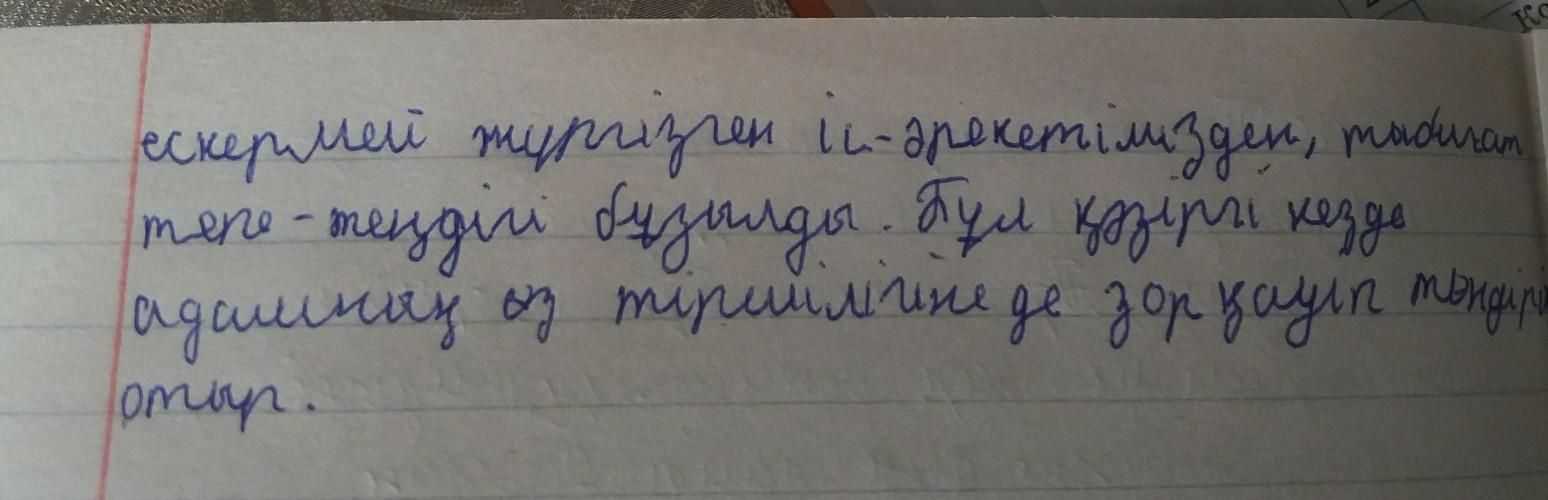 ескермей жүргізген іс-әрекетімізден, табиғат
тепе-теңдігі бұзылды. Бұл қәзіргі кезде
адамның өз тіршілігіне де зор қауіп төндіріп
отыр.